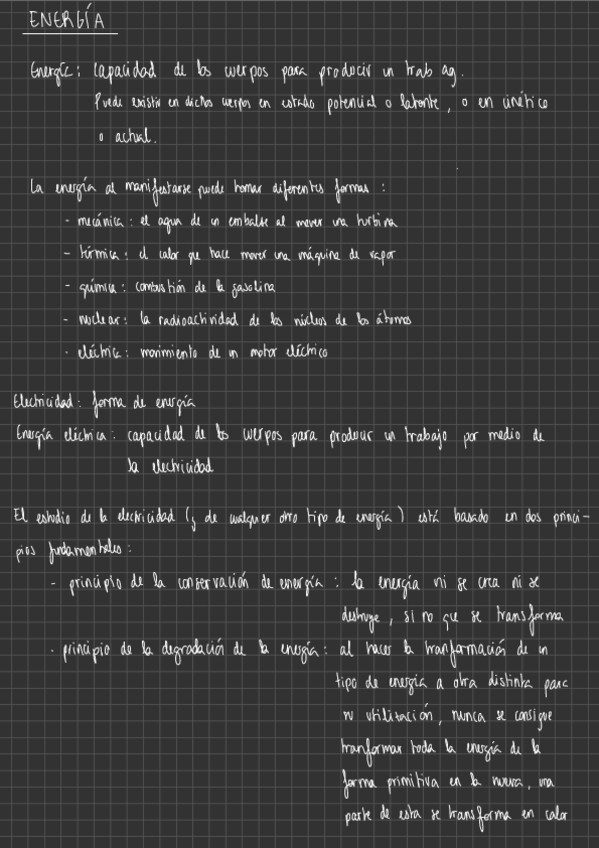 ENERGÍA
Energía: capacidad de los cuerpos para producir un trabajo.
Puede existir en dichos cuerpos en estado potencial o latente, o en cinético
o actual.
La energía al manifestarse puede tomar diferentes formas:
- mecánica: el agua de un embalse al mover una turbina
- térmica: el calor que hace mover una máquina de vapor
- química: combustión de la gasolina
- nuclear: la radioactividad de los núcleos de los átomos
- eléctrica: movimiento de un motor eléctrico
Electricidad: forma de energía
Energía eléctrica: capacidad de los cuerpos para producir un trabajo por medio de
la electricidad
El estudio de la electricidad (y de cualquier otro tipo de energía) está basado en dos princi-
pios fundamentales:
- principio de la conservación de energía: la energía ni se crea ni se
destruye, si no que se transforma
- principio de la degradación de la energía: al hacer la tranformación de un
tipo de energía a otra distinta para
su utilización, nunca se consigue
tranformar toda la energía de la
forma primitiva en la nueva, una
parte de esta se transforma en calor